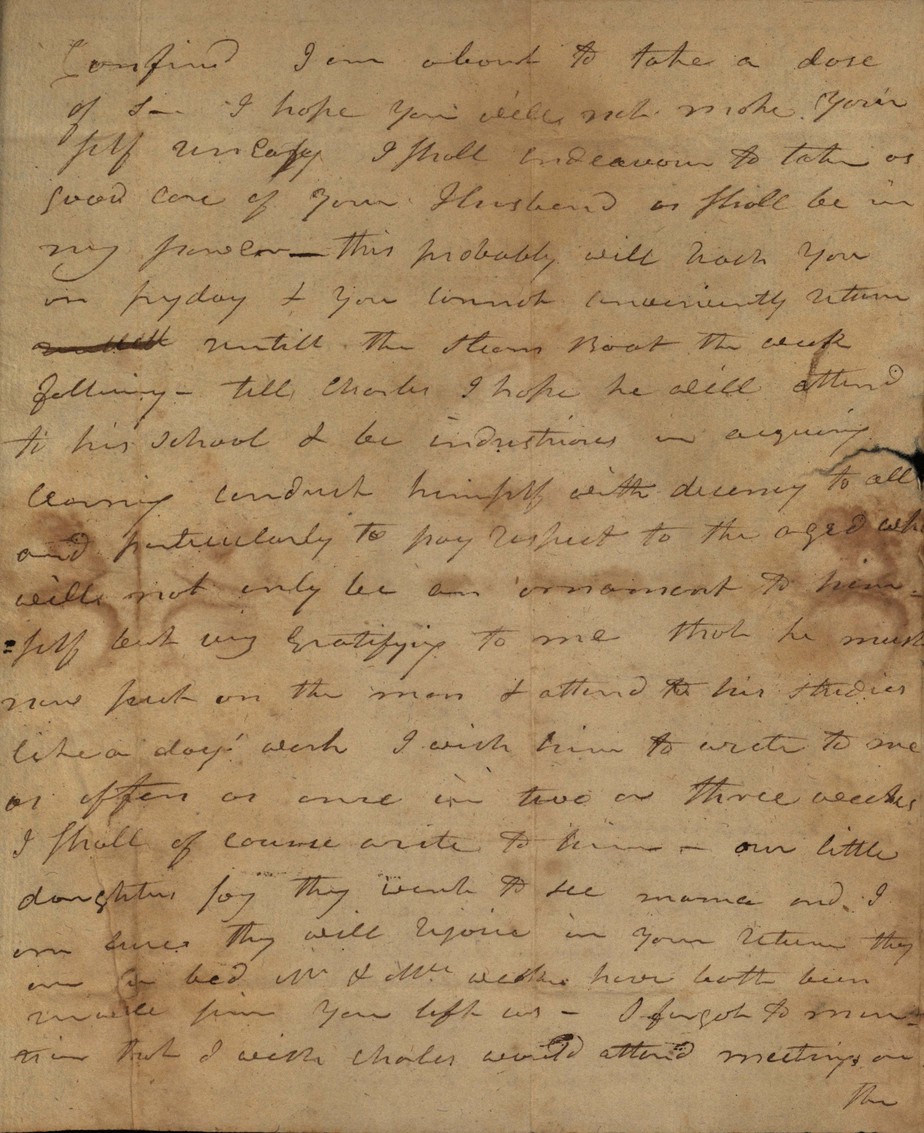 Confind I am about to take a dose
of S— I hope you will not make your
self uneasy I shall endeavour to take as
good care of your Husband as shall be in
my power — this probably will reach you
on fryday & you cannot conveniently return
untill the Steam Boat the week
following — tell Charles I hope he will attend
to his School & be industrious in acquiring
learning conduct himself with decency to all
and particularly to pay respect to the aged
will not only be an ornament to him=
=self but very gratifying to me that he must
now put on the man & attend to his studies
like a days work I wish him to write to me
as often as once in two or three weeks
I shall of course write to him — our little
daughters say they want to see mama and I
am sure they will rejoice in your return they
are in bed Mr & Mrs Weeks have both been
unwell since you left us — I forgot to men=
tion that I wish Charles would attend meetings on
the